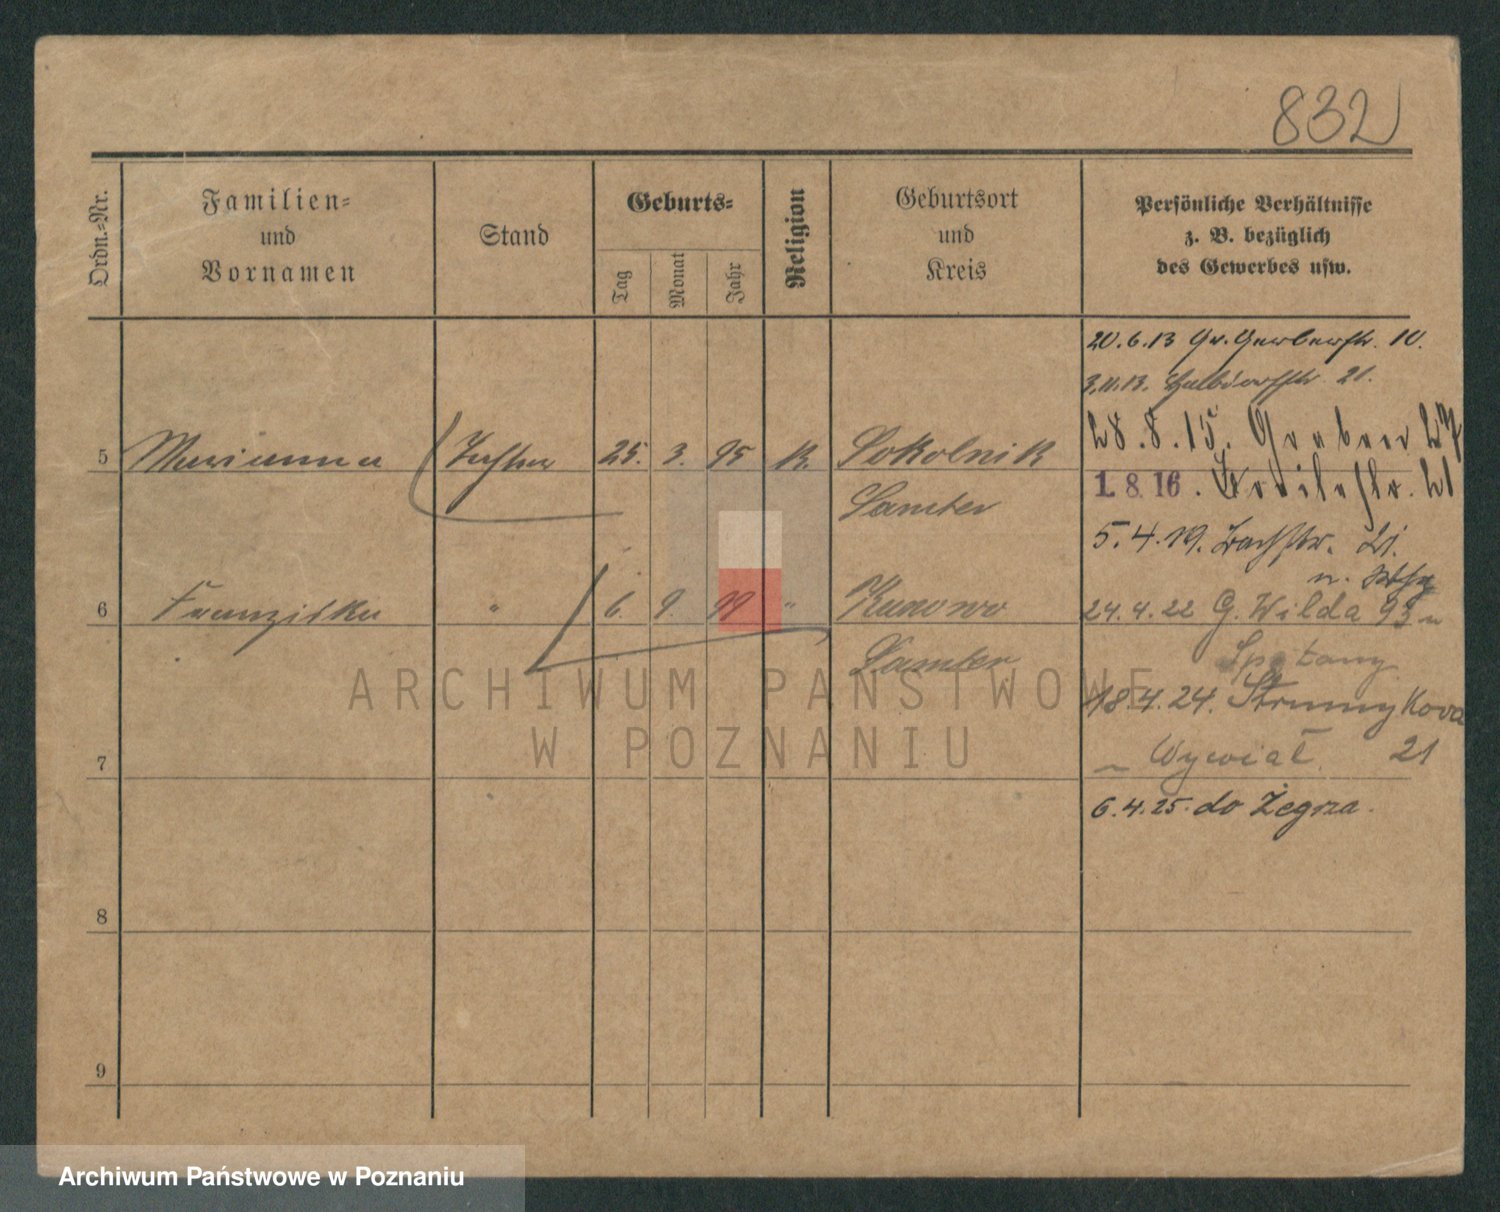 832
Ordn.-Nr.
Familien-
und
Vornamen
Stand
Geburts-
Tag
Monat
Jahr
Religion
Geburtsort
und
Kreis
Persönliche Verhältnisse
z. B. bezüglich
des Gewerbes usw.
20.6.13 Gr. Gerberstr. 10.
3.11.13. 21.
28.8.15. Graben 27
5 Marianna Tochter 25. 3. 95 K. Sokolnik
1.8.16. 21
Samter
5.4.19. Bachstr. 21.
6 Franziska " 6. 9. 99 " Kunowo
24.4.22 G. Wilda 93
Samter
18.4.24. Strumykova
7
Wywiał. 21
6.4.25. do Żegrza.
8
9
ARCHIWUM PAŃSTWOWE
W POZNANIU
Archiwum Państwowe w Poznaniu